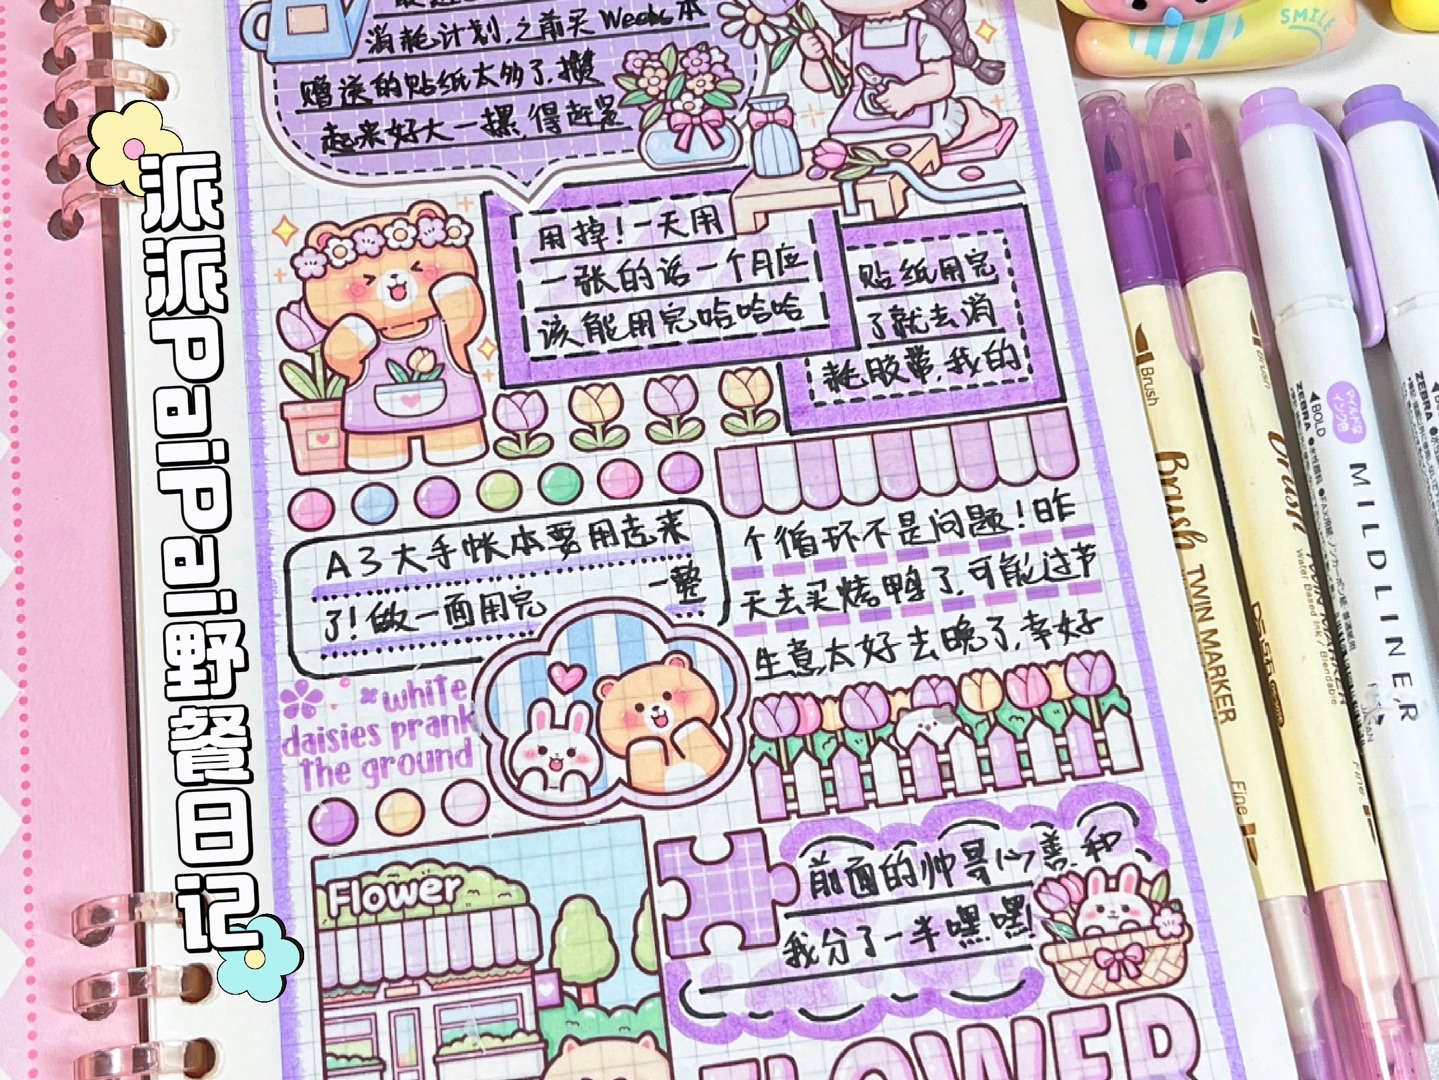 消耗计划,之前买Weeks本
赠送的贴纸太多了,攒
起来好大一摞,得赶紧
用掉!一天用
一张的话一个月应
该能用完哈哈哈
贴纸用完
了就去消
耗胶带,我的
A3大手帐本要用起来
了!做一面用完
一整
个循环不是问题!昨
天去买烤鸭了,可能过节
生意太好去晚了,幸好
white
daisies prank
the ground
Flower
前面的帅哥心善,和
我分了一半嘿嘿!
FLOWER
派派PaiPai野餐日记
SMILE
Brush
Brush TWIN MARKER
Fine
Brush
Water Based Ink / Blendable
Fine
BOLD
ZEBRA
マイルドな
インク色
MILDLINER
ZEBRA